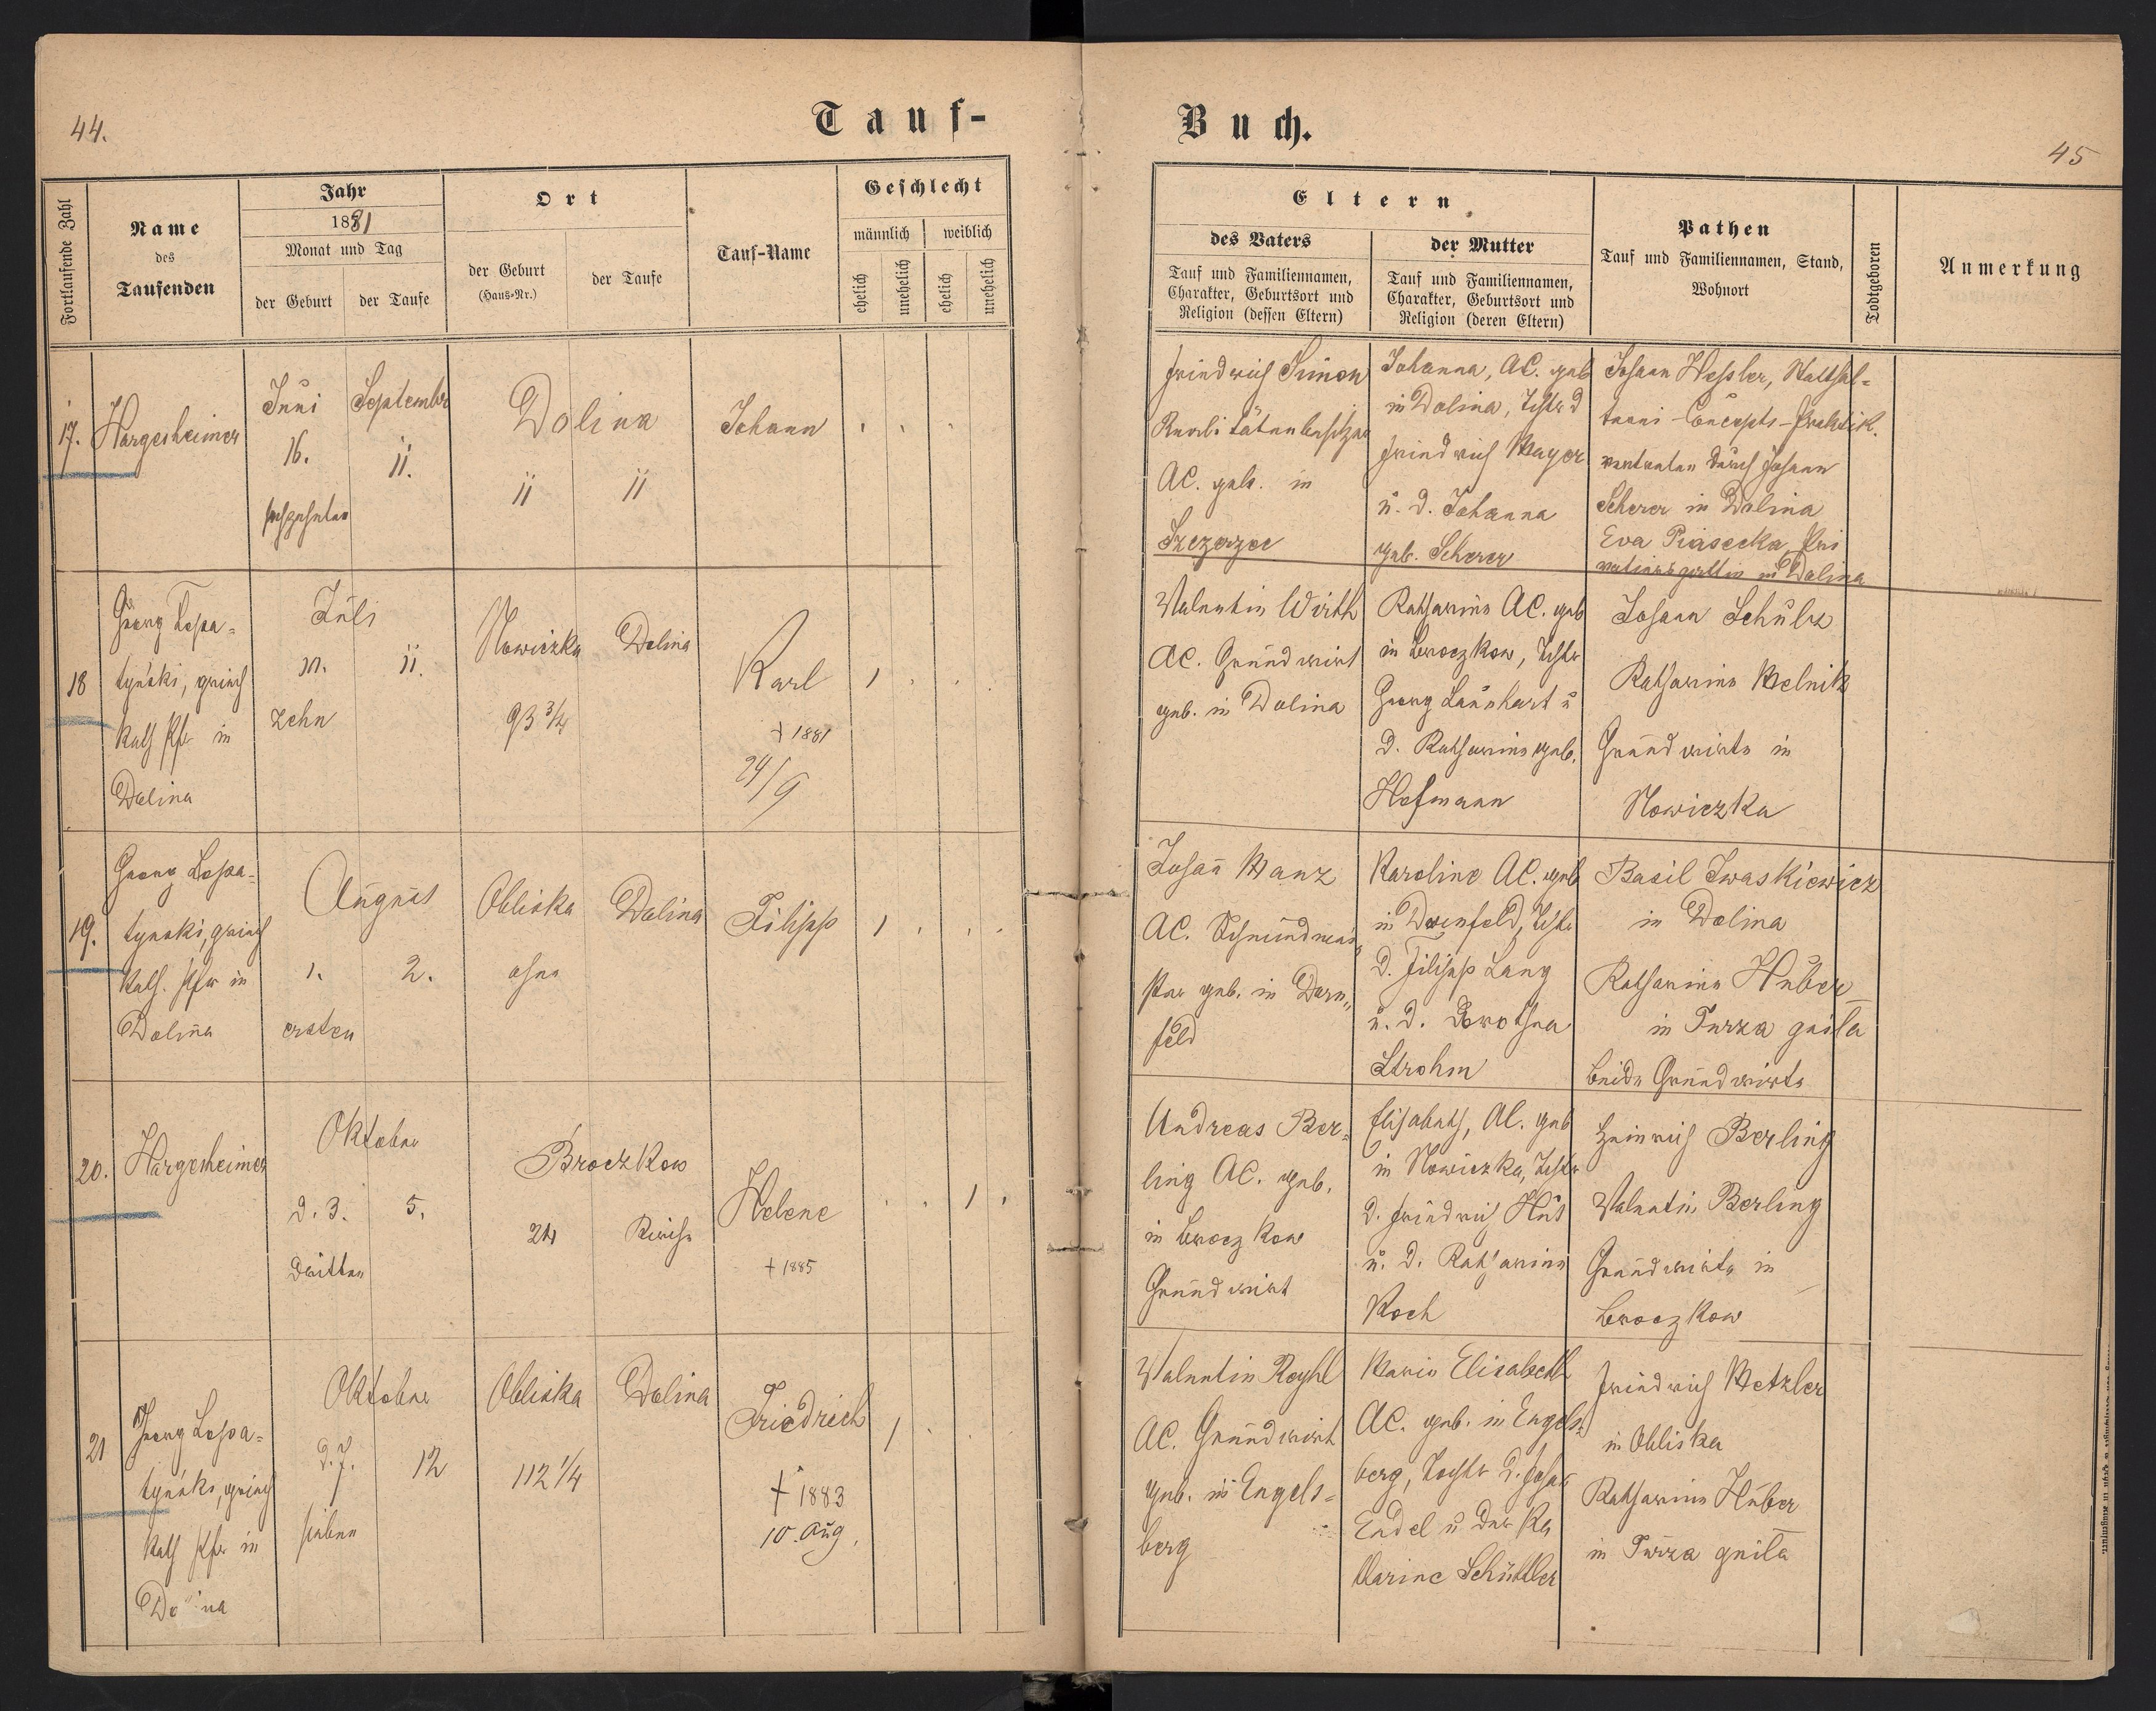 44.
Tauf-
Fortlaufende Zahl
Name
des
Taufenden
Jahr
1881
Monat und Tag
der Geburt
der Taufe
Ort
der Geburt
(Haus-Nr.)
der Taufe
Tauf-Name
Geschlecht
männlich
weiblich
ehelich
unehelich
ehelich
unehelich
17.
Hargesheimer
Juni
16.
sechzehnten
September
11.
Dolina
11
11
Johann
18
Georg Lopa-
tyński, griech
kath Pfr in
Dolina
Juli
10.
zehn
11.
Nowiczka
93 3/4
Dolina
Karl
† 1881
24/9
1
19.
Georg Lopa-
tynski, griech
kath. Pfr in
Dolina
August
1.
ersten
2.
Obliska
ohne
Dolina
Filipp
1
20.
Hargesheimer
Oktober
d. 3.
dritten
5.
Broczkow
24
Kirche
Helene
† 1885
1
21
Georg Lopa-
tyński, griech
kath Pfr in
Do na
Oktober
d. 7.
sieben
12
Obliska
112 1/4
Dolina
Friedrich
† 1883
10. Aug.
1
Buch.
45
Eltern
des Vaters
Tauf und Familiennamen,
Charakter, Geburtsort und
Religion (dessen Eltern)
der Mutter
Tauf und Familiennamen,
Charakter, Geburtsort und
Religion (deren Eltern)
Pathen
Tauf und Familiennamen, Stand,
Wohnort
Todtgeboren
Anmerkung
Friedrich Simon
Realitätenbesitzer
AC. geb. in
Szczerzec
Johanna, AC. geb
in Dolina, Tchtr d
Friedrich Mayer
u. d. Johanna
geb. Scherer
Johann Hessler, Statthal-
terei-Concepts-Praktik.
vertreten durch Johann
Scherer in Dolina
Eva Piasecka, Pri
vatiersgattin in Dolina
Valentin Wirth
AC. Grundwirt
geb. in Dolina
Katharina AC. geb
in Broczkow, Tchtr
Georg Launhart u
d. Katharina geb.
Hofmann
Johann Schulz
Katharina Melnik
Grundwirte in
Nowiczka
Johan̄ Manz
AC.
geb. in Dorn-
feld
Karoline AC. geb
in Dornfeld, Tchtr
d. Filipp Lang
u. d. Dorothea
Strohm
Basil Iwaskiewicz
in Dolina
Katharina Huber
in Turza gniła
beide Grundwirte
Andreas Ber-
ling AC. geb.
in Broczkow
Grundwirt
Elisabeth, AC. geb
in Nowiczka, Tchtr
d. Friedrich Hus
u. d. Katharina
Koch
Heinrich Berling
Valentin Berling
Grundwirte in
Broczkow
Valentin Reghl
AC. Grundwirt
geb. in Engels-
berg
Maria Elisabeth
AC. geb. in Engels-
berg, Tochtr d. Johan̄
Endel u der Ka
tharine Schüttler
Friedrich Metzler
in Obliska
Katharina Huber
in Turza gniła